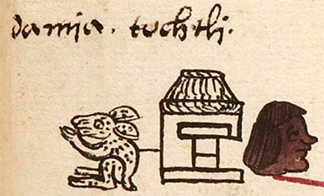 damia. tochtli.